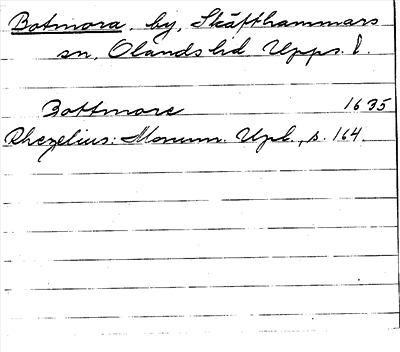 Botmora, by, Skäfthammars
sn, Olands hd. Upps. l.
Bottmore 1635
Rhezelius: Monum. Upl., s. 164.